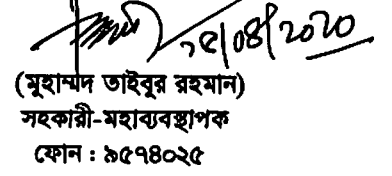 ২৫/০৪/২০২০
(মুহাম্মদ তাইবুর রহমান)
সহকারী-মহাব্যবস্থাপক
ফোন : ৯৫৭৪০২৫